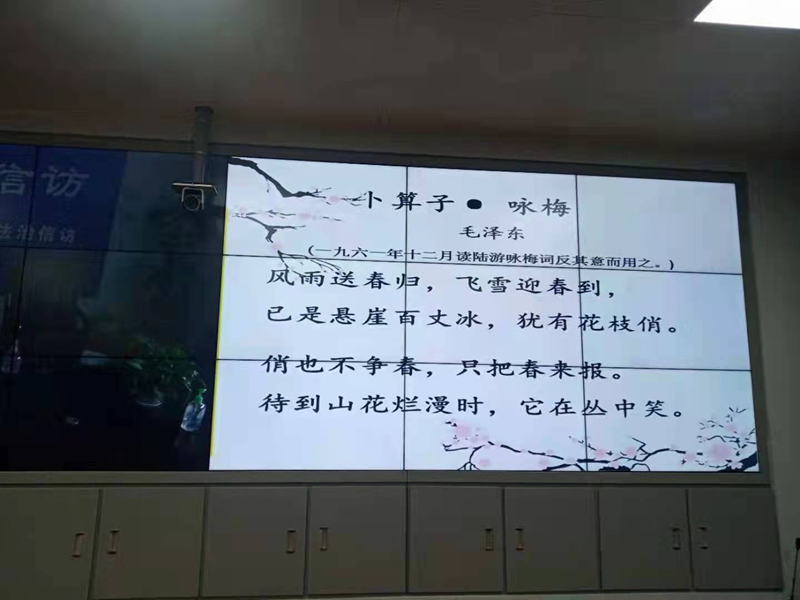 信访
法治信访
卜算子●咏梅
毛泽东
(一九六一年十二月读陆游咏梅词反其意而用之。)
风雨送春归，飞雪迎春到，
已是悬崖百丈冰，犹有花枝俏。
俏也不争春，只把春来报。
待到山花烂漫时，它在丛中笑。